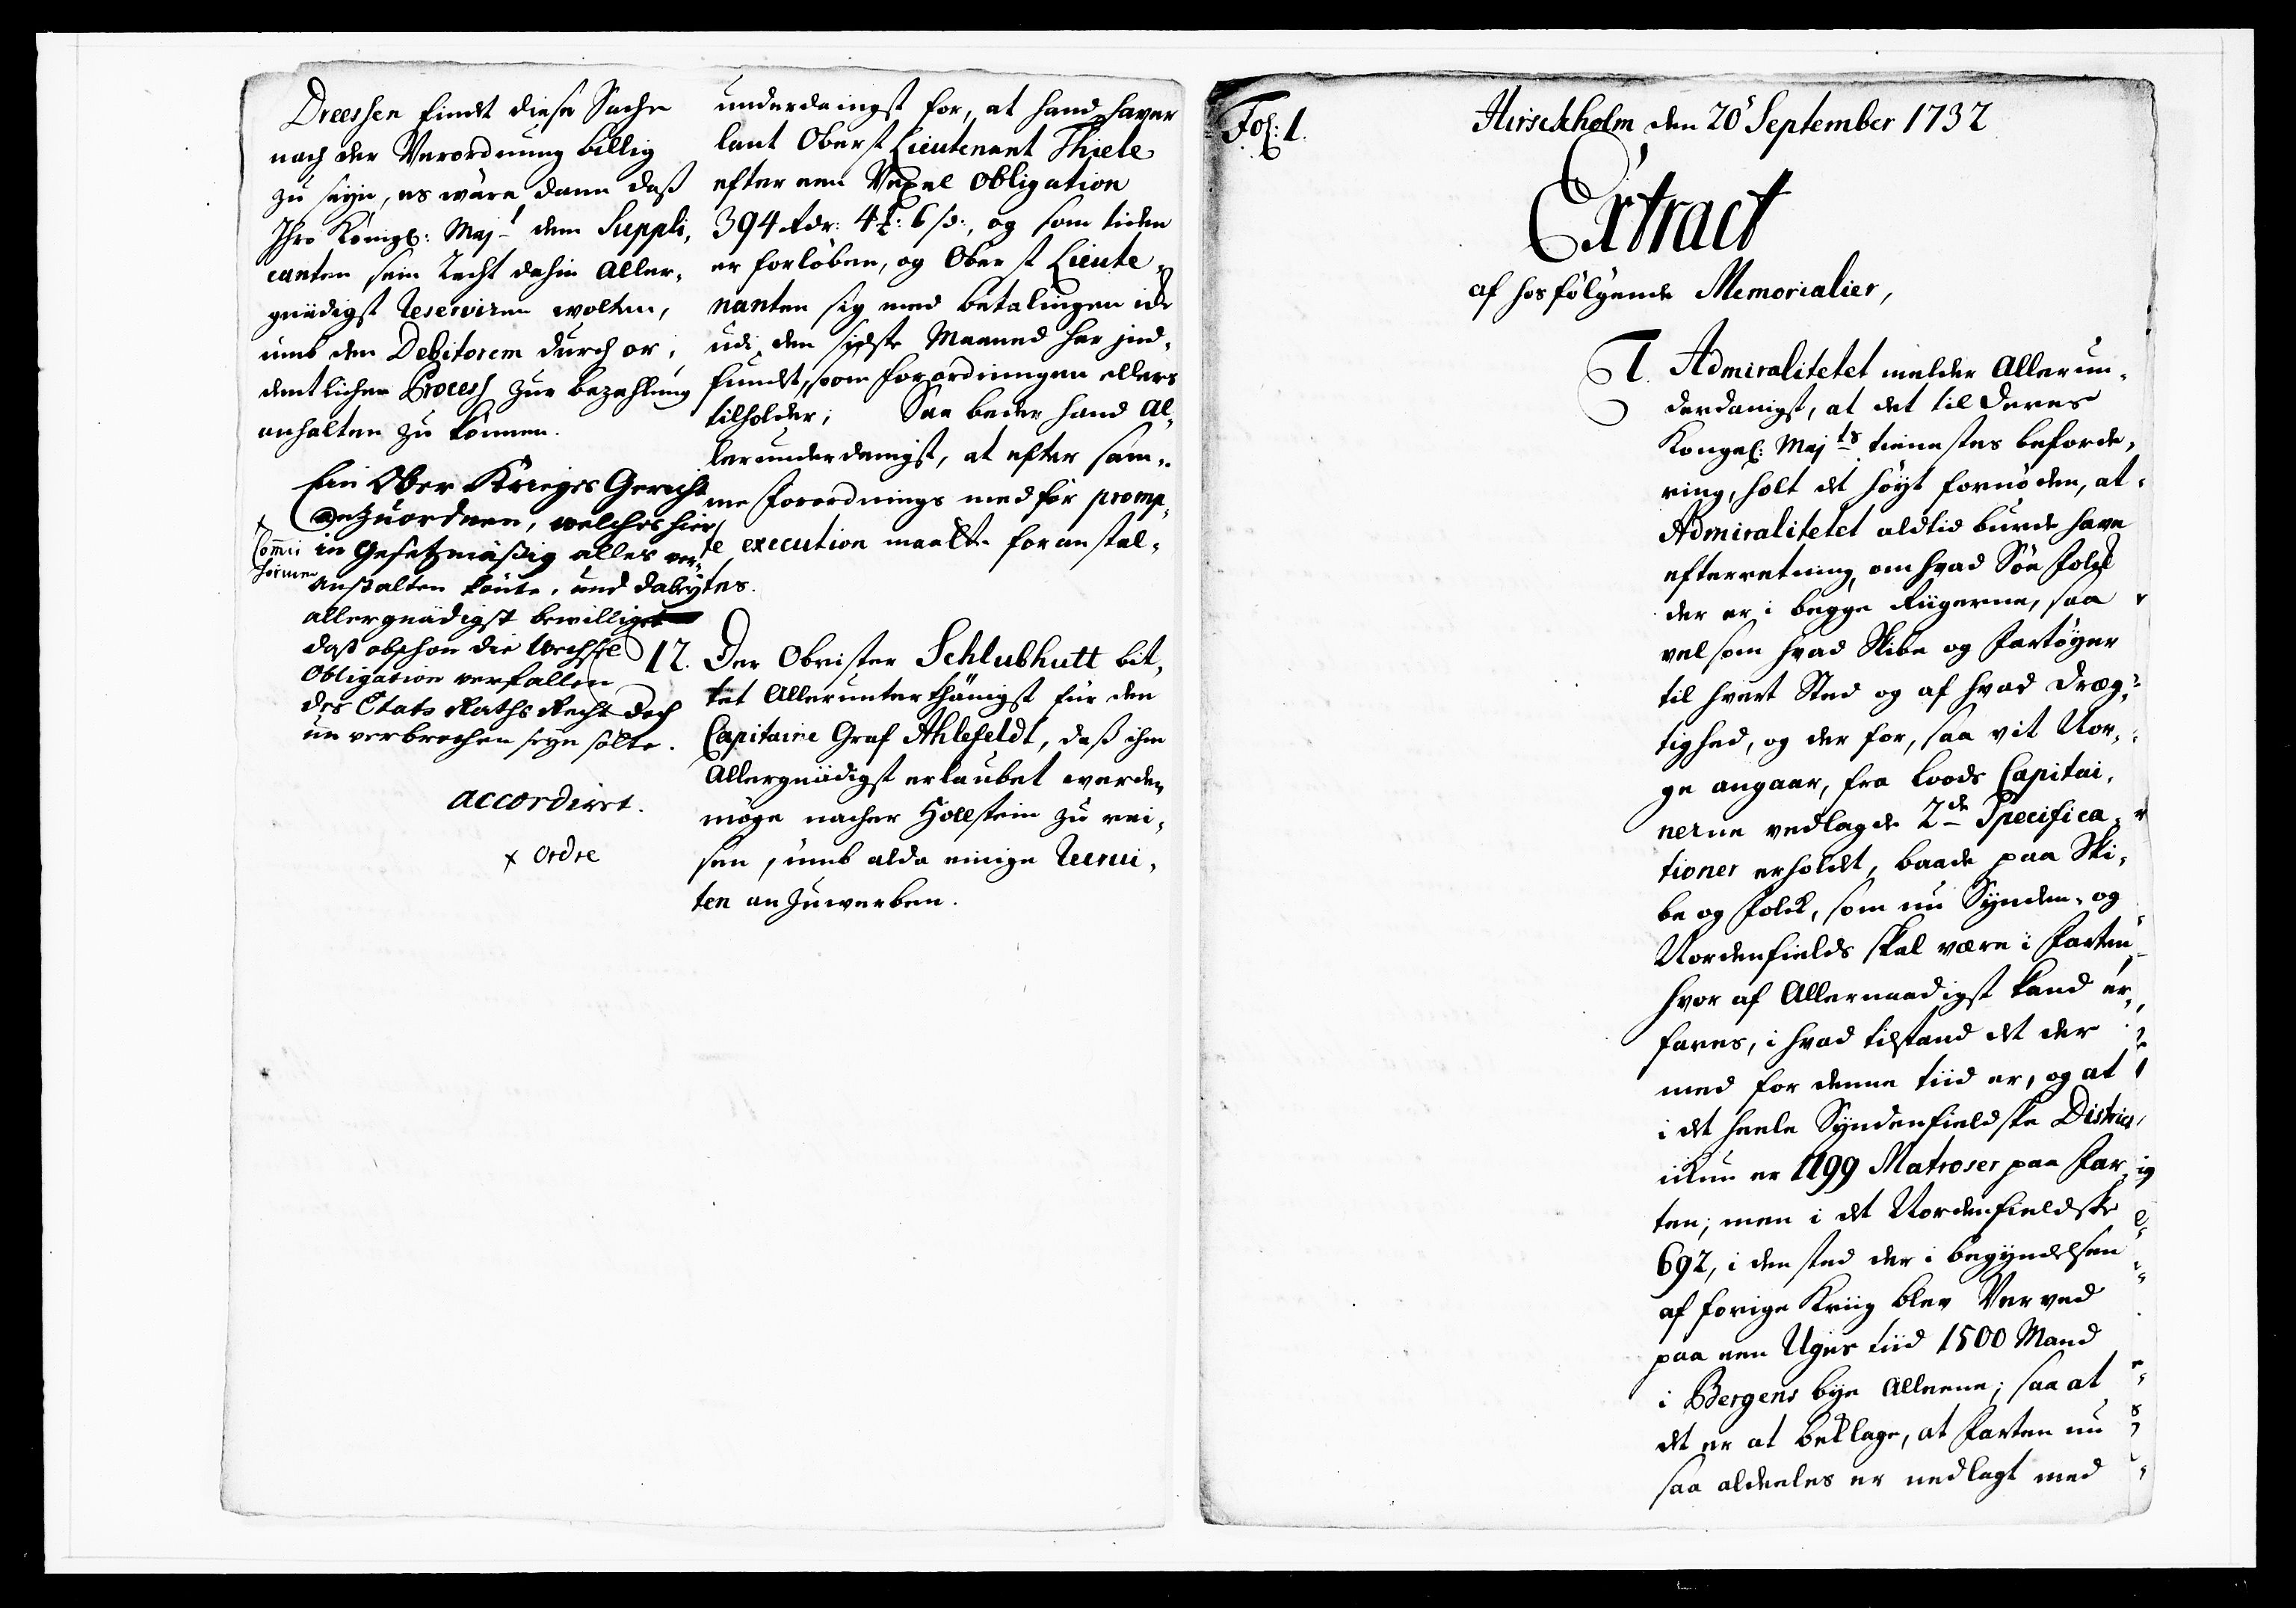 Dreessen findt diese Sache
nach der Verordnung billig
zu seyn, es wäre dann daß
Ihro Königl: Maj.t dem Suppli,
canten sein Recht dahin Aller,
gnädigst Reserviren wolten,
umb den Debitorem durch or,
dentlichen Process zur bezahlung
anhalten zu können.
Ein Ober Krieges Gericht
anzuordnen, welches hier,
in Gesetzmäßig alles ver,
anstalten könte, und dabey
allergnädigst bewilliget
daß obschon die Wechsel
Obligation verfallen
des Etats Raths Recht doch
un verbrochen seyn solte.
accordiret.
x Ordre
underdanigst for, at hand haver
lant Oberst Lieutenant Thiele
efter een Vexel Obligation
394 Rdr: 4 ₰: 6 ß:, og som tiden
er forløben, og Oberst Lieute,
nanten sig med betalingen ide
udi den sidste Maaned har ind,
fundet, som forordningen ellers
tilholder; Saa beder hand Al,
lerunderdanigst, at efter sam,
me forordnings medfør promp,
te execution maatte foranstal,
tes.
12. Der Obrister Schlubhutt bit,
tet Allerunterthänigst für den
Capitaine Graf Ahlefeldt, daß ihm
Allergnädigst erlaubet werden
möge nacher Hollstein zu rei,
sen, umb alda einige Recrui,
ten anzuwerben.
Fol: 1.
Hirschholm den 20 September 1732
Extract
af hosfølgende Memorialier,
1. Admiralitetet melder Allerun,
derdanigst, at det til Deres
Kongel: Maj.ts tienestes beforde,
ring, holt det høyt fornøden, at
Admiralitetet altid burde have
efterretning, om hvad Søe folck
der er i begge Riigerne, saa
vel som hvad Skibe og fartøyer
til hvert Sted og af hvad Dræg,
tighed, og der for, saa vit Nor,
ge angaar, fra Loods Capitai,
nerne vedlagde 2de Specifica,
tioner erholdt, baade paa Ski,
be og folck, som nu Synden, og
Nordenfields skal være i farten
hvor af Allernaadigst kand er,
fares, i hvad tilstand det der
med for denne tiid er, og at
i det heele Syndenfieldske District
ikun er 1199 Matroser paa far,
ten; men i det Nordenfieldske
692, i den sted der i begyndelsen
af forige Kriig blev Verved
paa een Uges tiid 1500 Mand
i Bergens bye Alleene; saa at
det er at beklage, at farten nu
saa aldeeles er nedlagt med